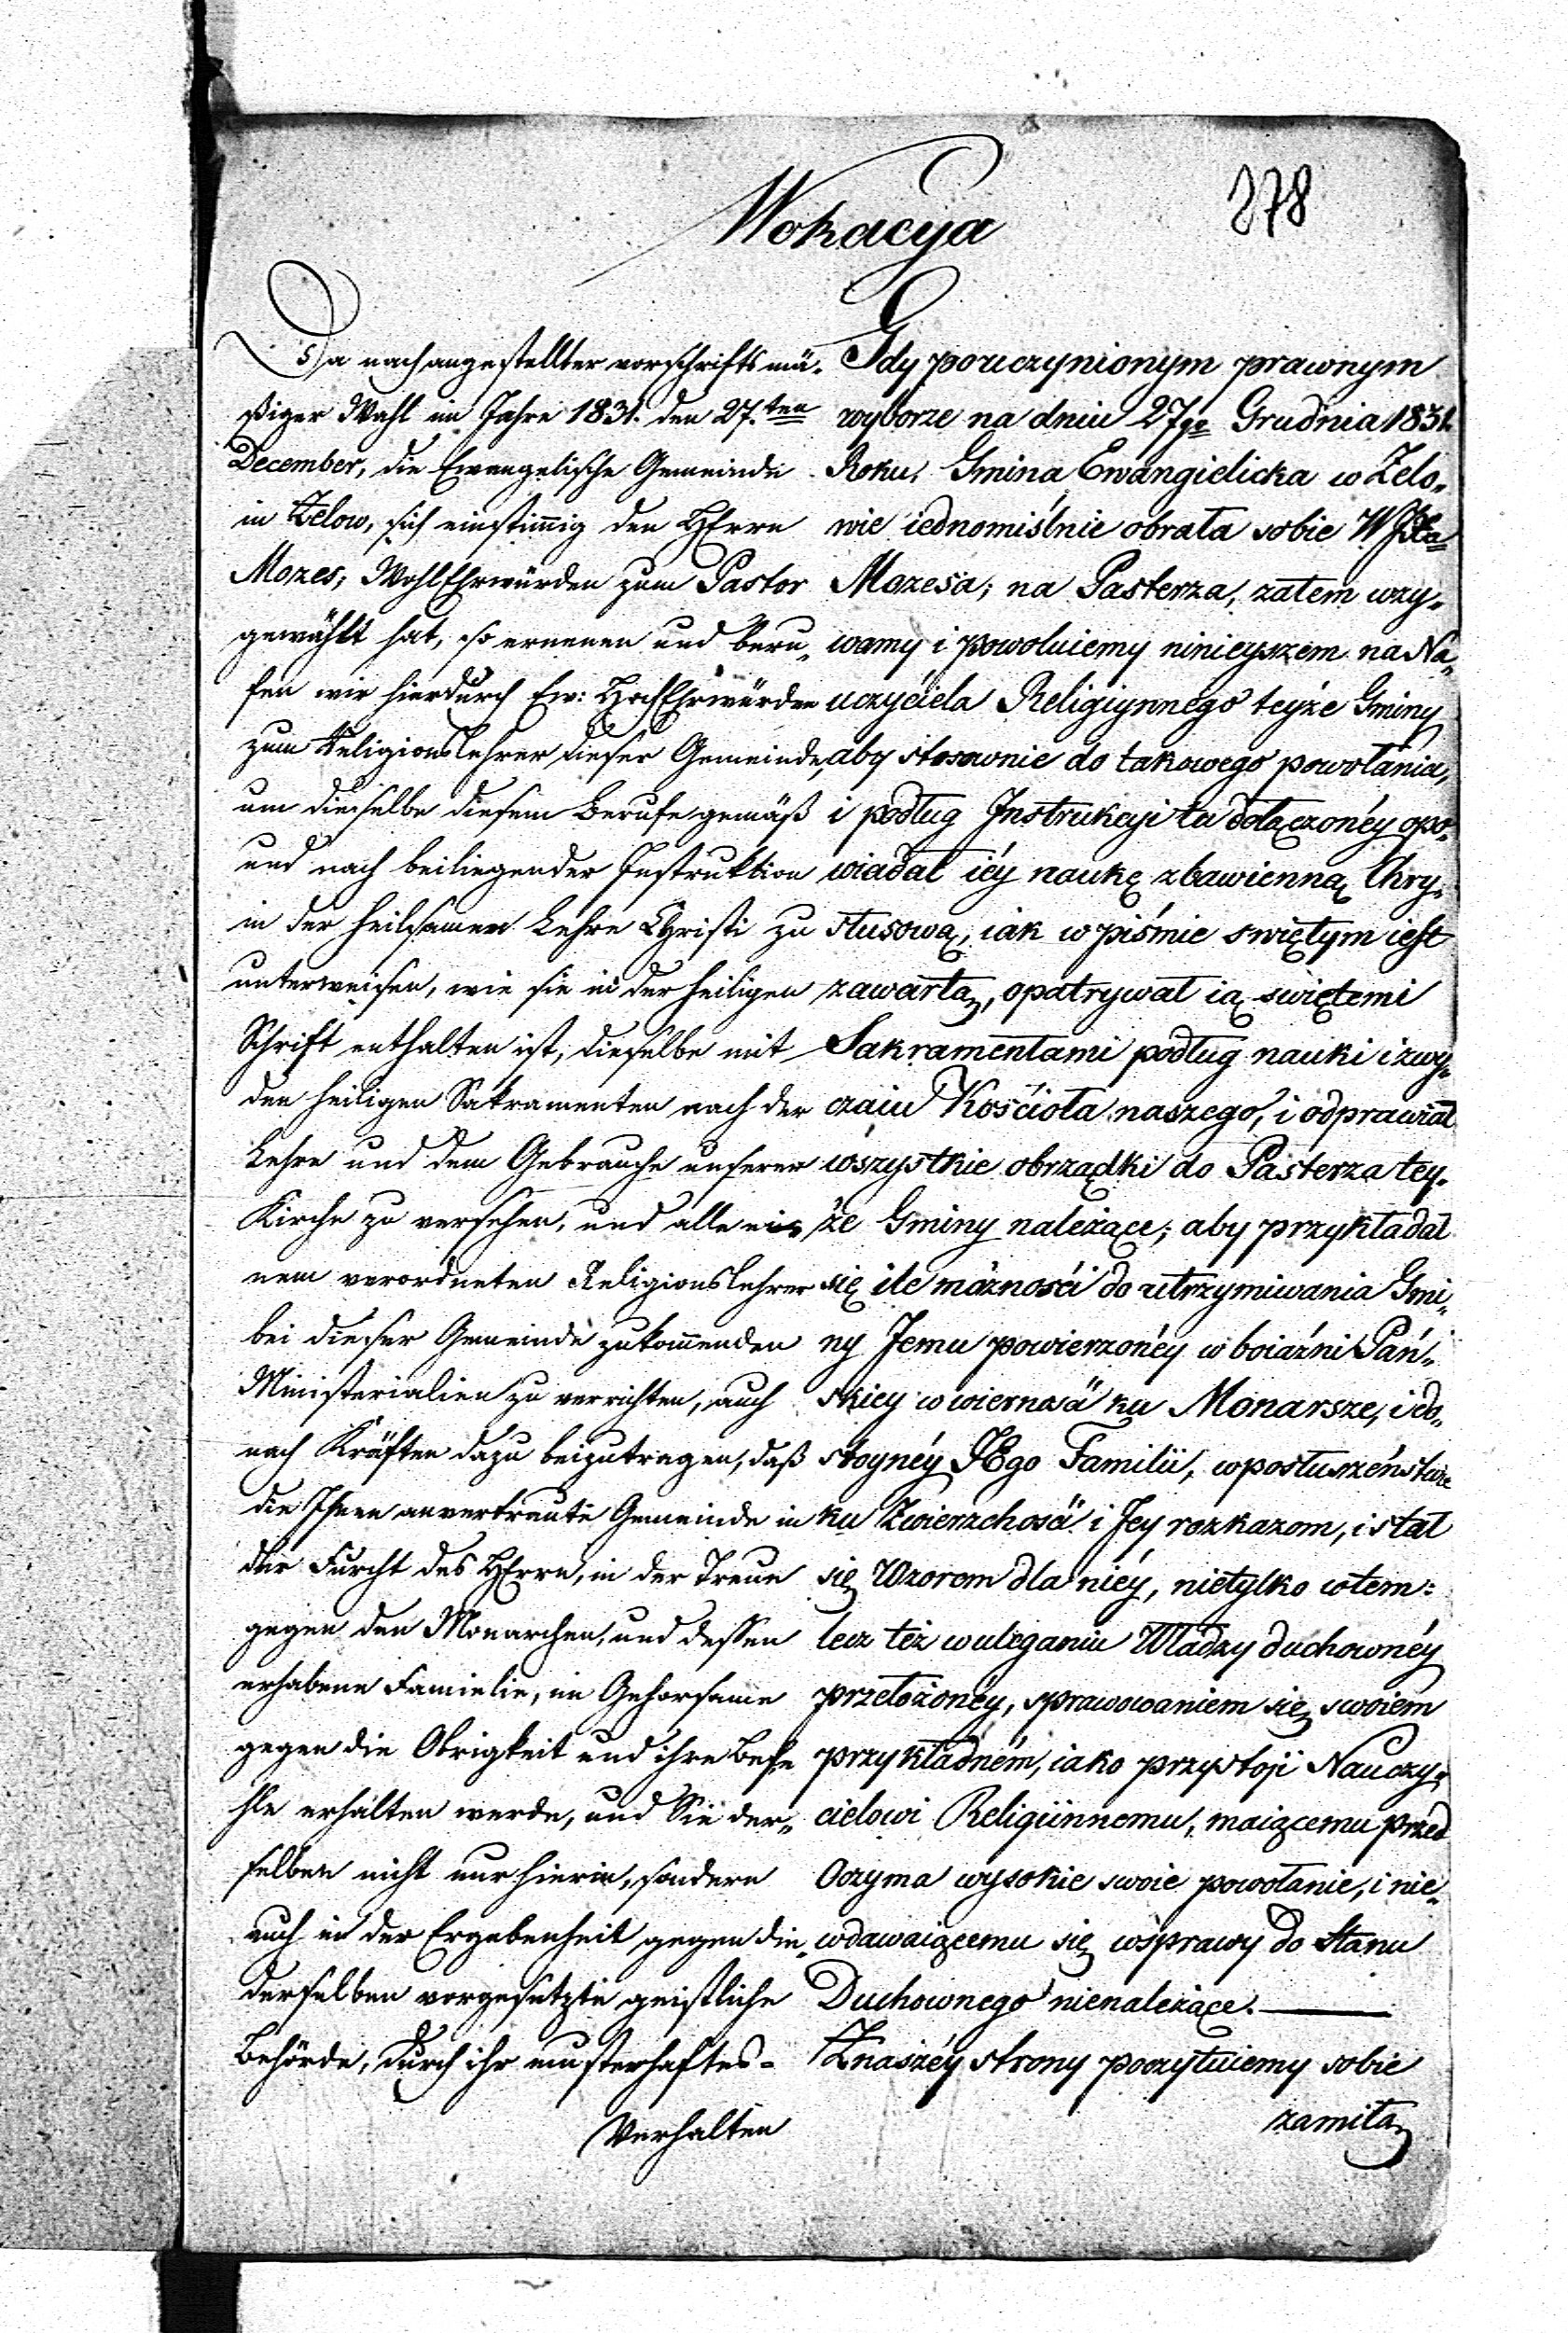 Wokacya
278
Da nach angestellter vorschriftsmä-
ßiger Wahl im Jahre 1831. den 27.ten
December, die Ewangelische Gemeinde
in Zelow, sich einstimig den HErrn
Mozes, WohlEhrwürden zum Pastor
gewählt hat, so ernenen und beru-
fen wir hierdurch Ew: HochEhrwürden
zum Religionslehrer dieser Gemeinde,
um dieselbe diesem Berufe gemäß
und nach beiliegender Instruktion
in der heilsamen Lehre Christi zu
unterweisen, wie sie in der heiligen
Schrift enthalten ist, dieselbe mit
den heiligen Sakramenten nach der
Lehre und dem Gebrauche unserer
Kirche zu versehen, und alle ei-
nem verordneten Religionslehrer
bei dieser Gemeinde zukommenden
Ministerialien zu verrichten, auch
nach Kräften dazu beizutragen, daß
die Ihnen anvertraute Gemeinde in
der Furcht des HErrn, in der Treue
gegen den Monarchen, und dessen
erhabene Familie, im Gehorsame
gegen die Obrigkeit und ihre Befe
hle erhalten werde, und Sie der-
selben nicht nur hierin, sondern
auch in der Ergebenheit gegen die
derselben vorgesetzte geistliche
Behörde, durch ihr musterhaftes-
Verhalten
Gdy po uczynionym prawnym
wyborze na dniu 27go Grudnia 1831.
Roku, Gmina Ewangielicka w Zelo-
wie iednomiślnie obrała sobie WJX
Mozesa; na Pasterza, zatem wzy-
wamy i powołuiemy ninieyszem na Na-
uczyciela Religiynnego teyże Gminy
aby stosownie do takowego powołania,
i podług Instrukcyi tu dołączonéy opo-
wiadał iéy naukę zbawienną Chry-
stusową, iak w piśmie swiętym iest
zawarta, opatrywał ią swiętemi
Sakramentami podług nauki i zwy-
czaiu Kościoła naszego, i odprawiał
wszystkie obrządki do Pasterza tey-
że Gminy należące; aby przykładał
się ile możności do utrzymiwania Gmi-
ny Jemu powierzonéy w boiaźni Pań-
skiey w wierności ku Monarsze, i do-
stoynéy JEgo Familii, w posłuszeństwie
ku Zwierzchości i Jey rozkazom, i stał
się Wzorem dla niéy, nietylko w tem:
lecz też w uleganiu Władzy duchownéy
przełożonéy, sprawowaniem się swoiem
przykładném, iako przystoji Nauczy-
cielowi Religiinnemu, maiącemu przed
Oczyma wysokie swoie powołanie, i nie-
wdawaiącemu się w sprawy do Stanu
Duchownego nienależące.
Z naszéy strony poczytuiemy sobie
za miłą